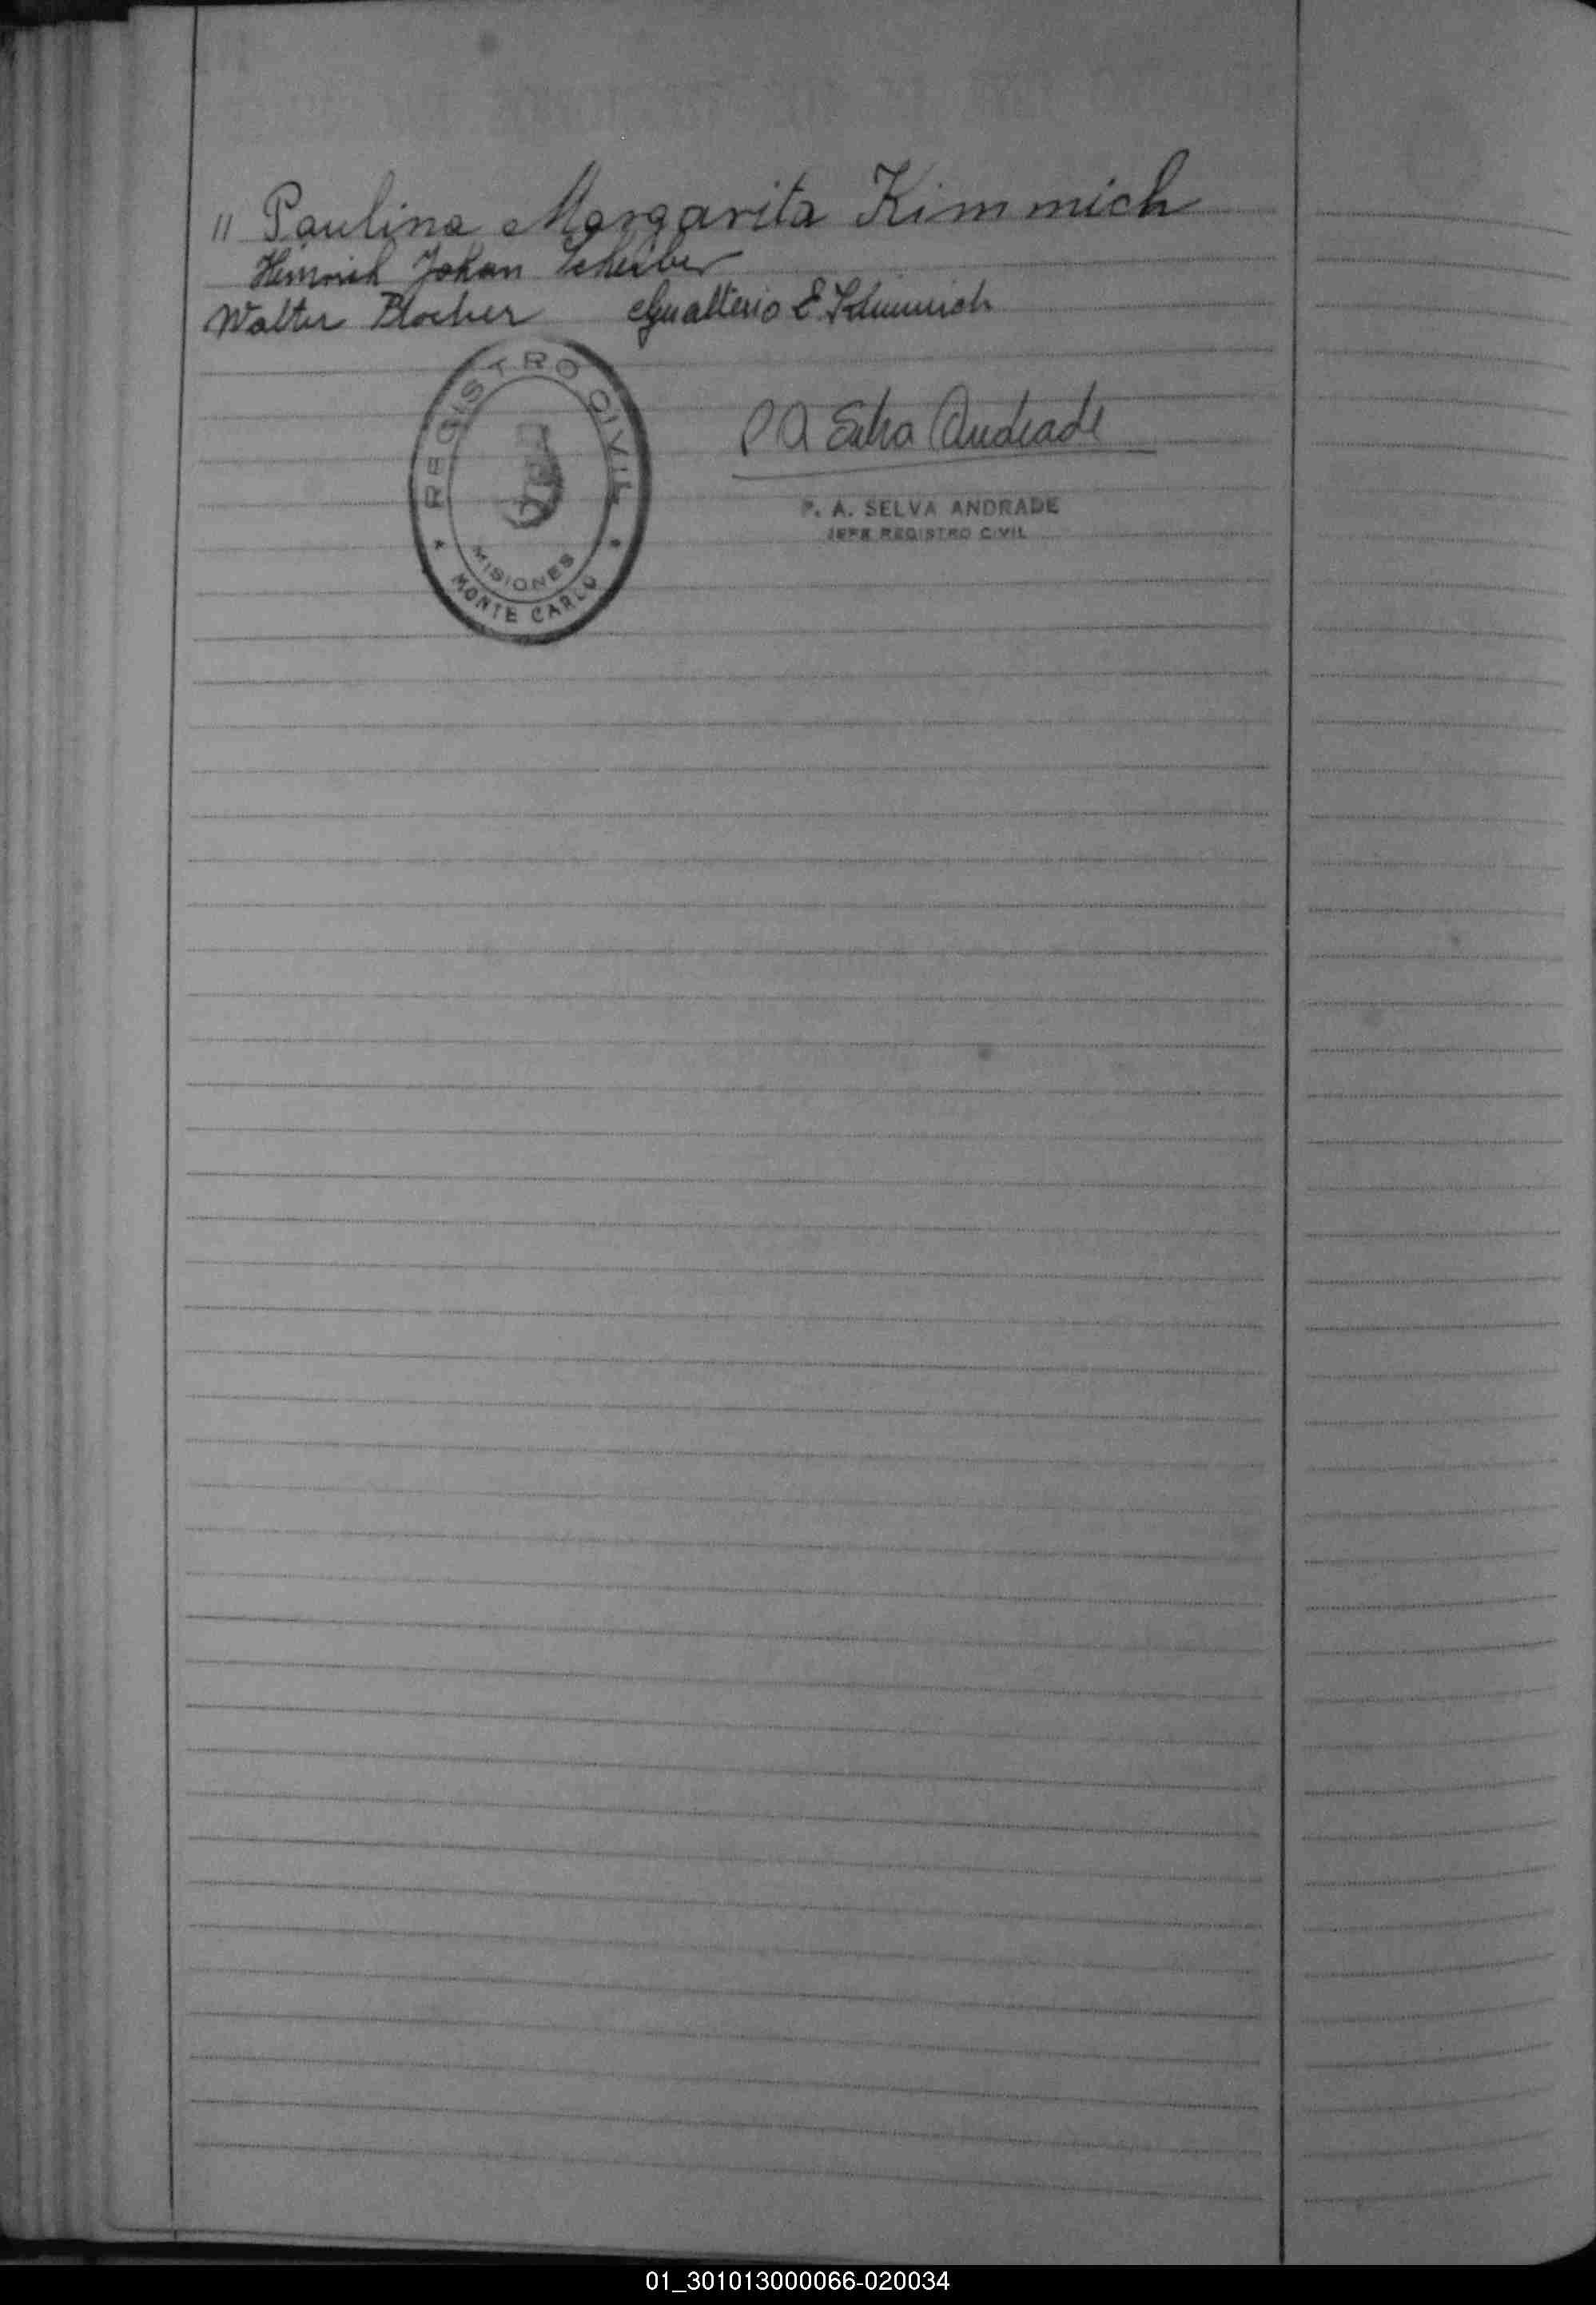 " Paulina Margarita Kimmich
Heinrich Johan Scheiber
Walter Blocher Gualterio E. Kimmich
REGISTRO CIVIL
MISIONES
MONTE CARLO
P A Selva Andrade
P. A. SELVA ANDRADE
JEFE REGISTRO CIVIL
01_301013000066-020034